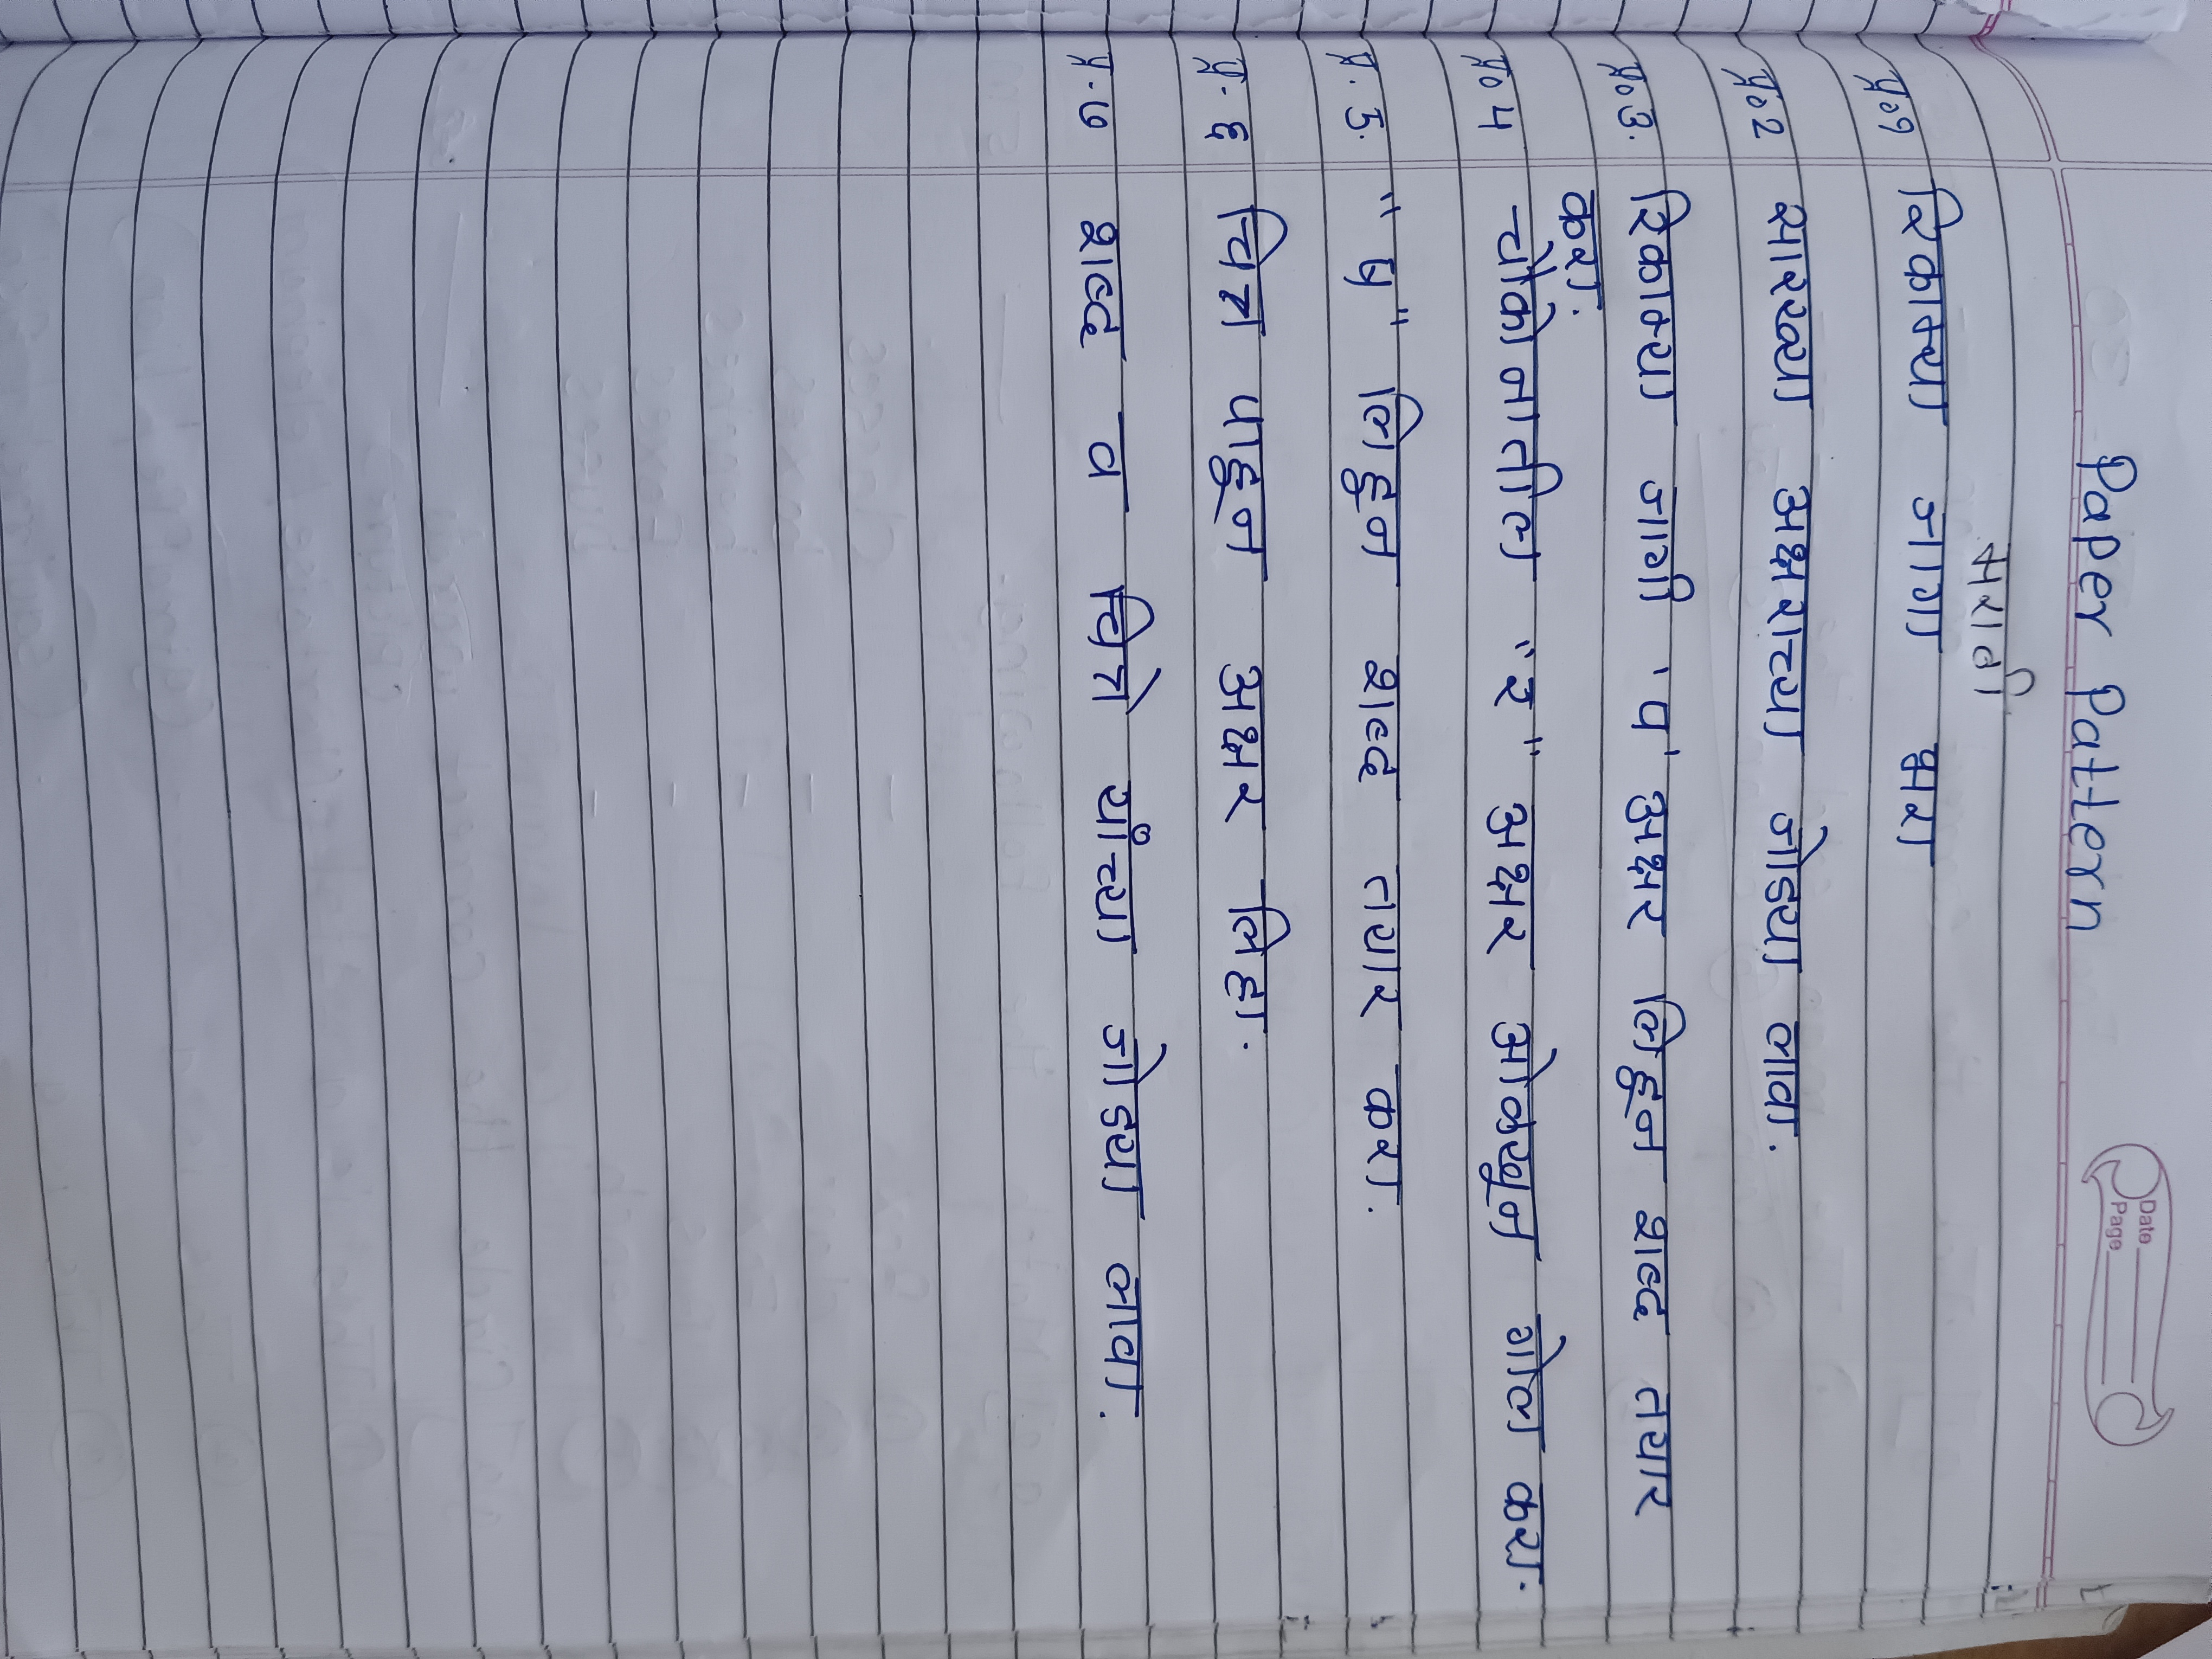 Paper Pattern
Date
Page
मराठी
प्र०१ रिकाम्या जागा भरा
प्र०2 सारख्या अक्षराच्या जोड्या लावा.
प्र०3. रिकाम्या जागी 'प' अक्षर लिहून शब्द तयार
करा.
प्र०4 चौकोनातील "र" अक्षर ओळखून गोल करा.
प्र.5. "ध" लिहून शब्द तयार करा.
प्र.६ चित्र पाहून अक्षर लिहा.
प्र.७ शब्द व चित्रे यांच्या जोड्या लावा.